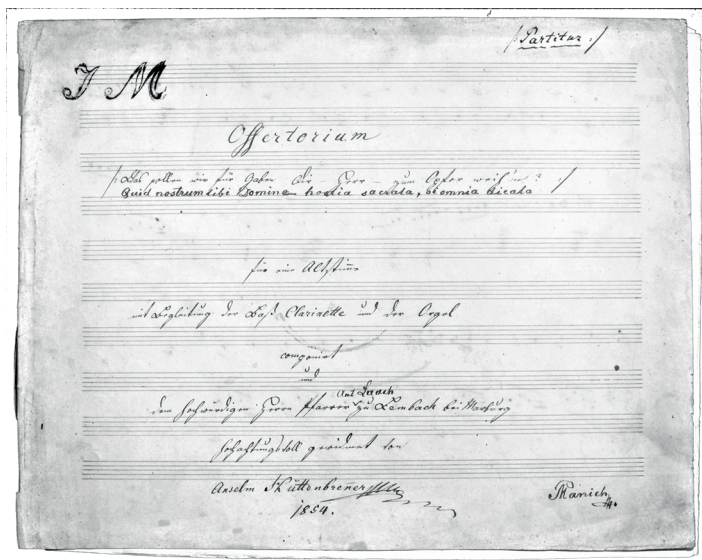 /: Partitur :/
J M
Offertorium
/: Was sollen wir für Gaben dir – Herr – zum Opfer weih'n? :/
Quid nostrum tibi Domine hostia sacrata, si omnia dicata
für eine Altstimme
mit Begleitung der Baß Clarinette und der Orgel
componirt
und
dem hochwürdigen Herrn Pfarrer Ant Lasch zu Lembach bei Marburg
hochachtungsvoll gewidmet von
Anselm Hüttenbrenner
1854.